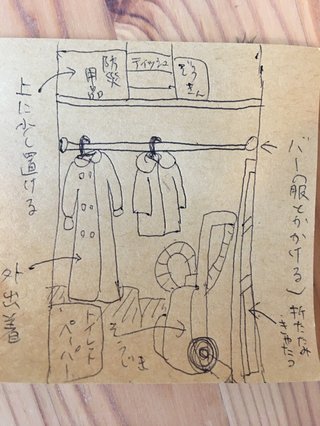 防災
用品
ティッシュ
ぞう
きん
上に少し置ける
バー(服とかかける)
外出着
折たたみ
きゃたつ
トイレット
ペーパー
そうじき